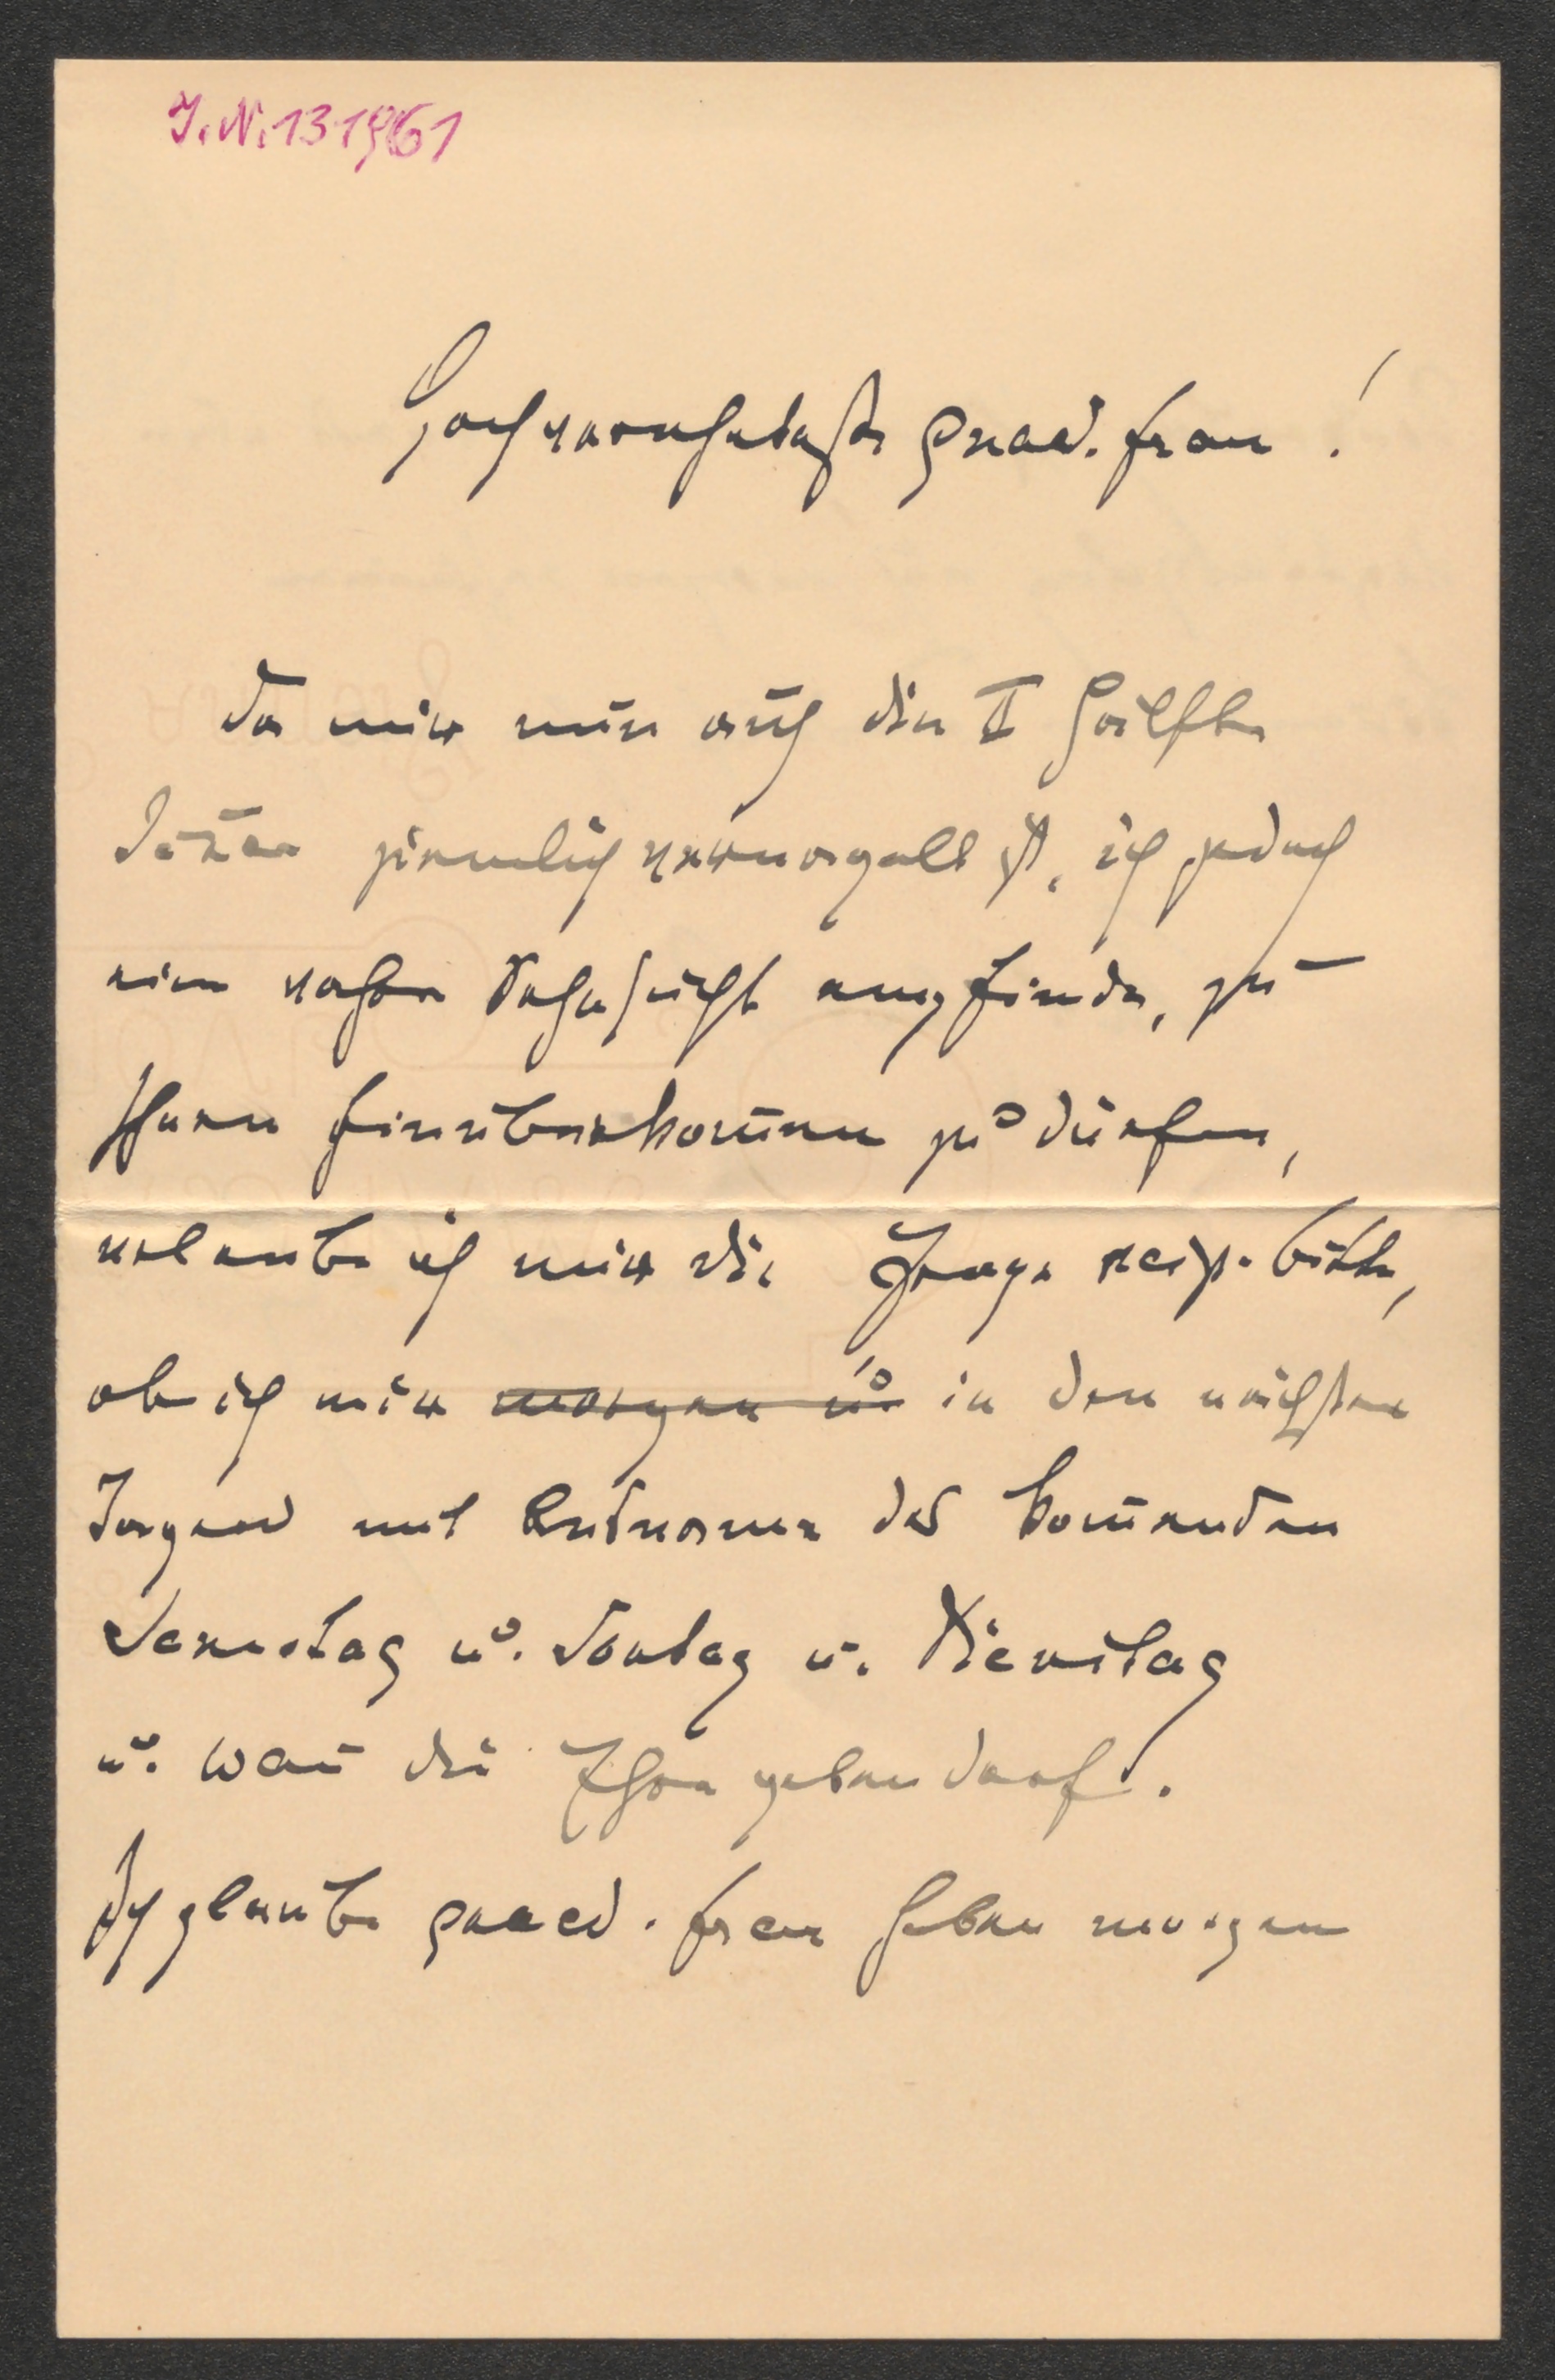 J.N. 131961
Hochverehrteste gnäd. Frau!
Da mir nun auch die II Hälfte
ziemlich vernagelt ist, ich jedoch
eine wahre Sehnsucht empfinde, zu
Ihnen hinüberkommen zu dürfen,
erlaube ich mir die Frage resp. bitte,
ob ich mir morgen u. in den nächsten
Tagen mit Ausnahme des kommenden
Samstag u. Sontag u. Dienstag
u. wan die Ehre geben darf!.
Ich glaube gnaed. Frau haben morgen